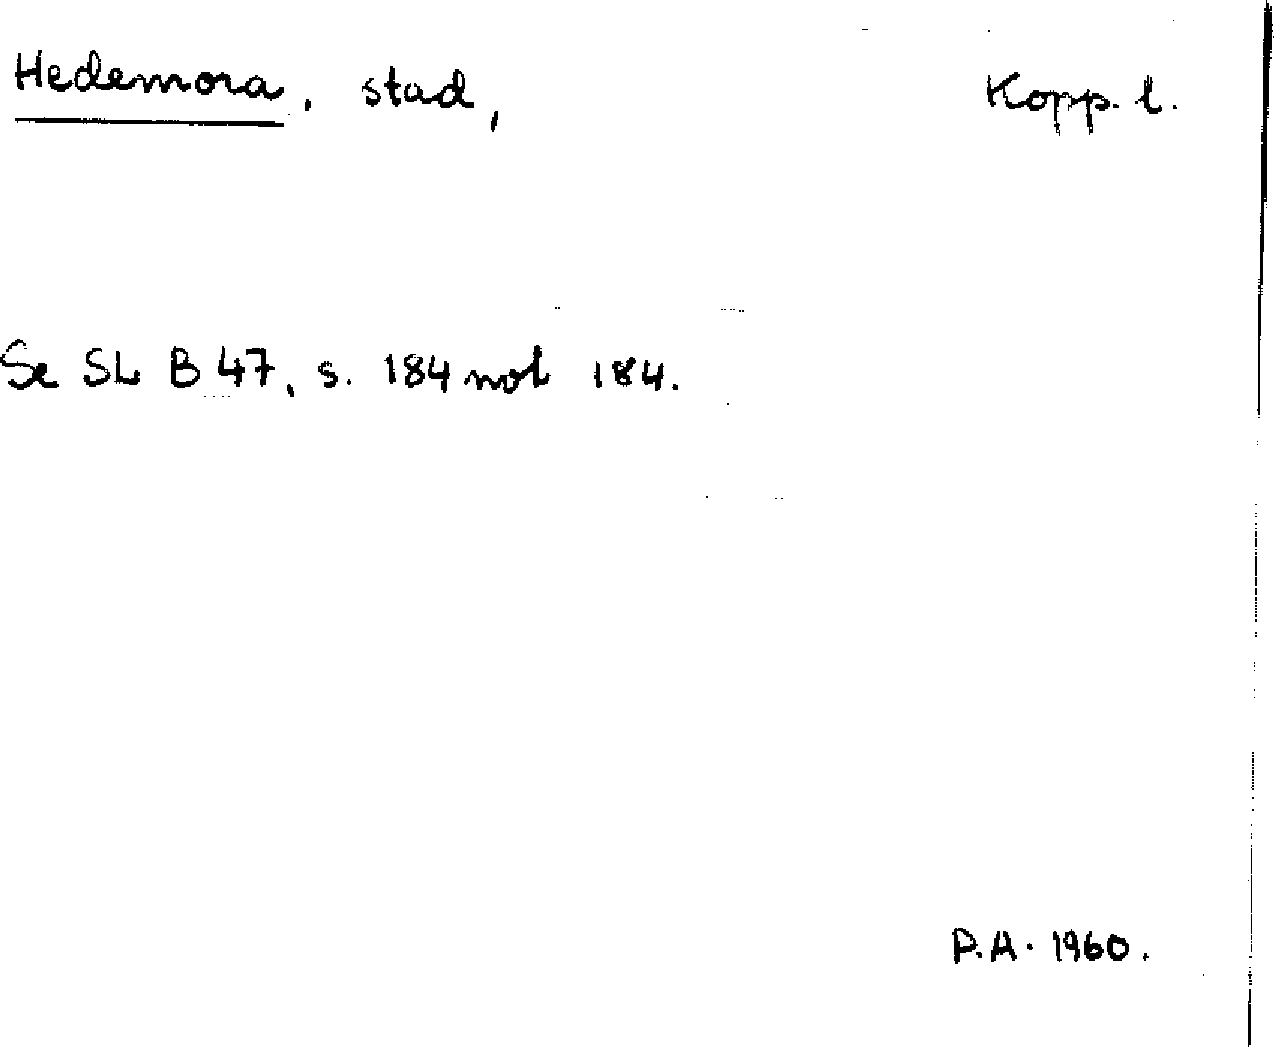 Hedemora, stad, Kopp. l.
Se SL B 47, s. 184 not 184.
P.A. 1960.